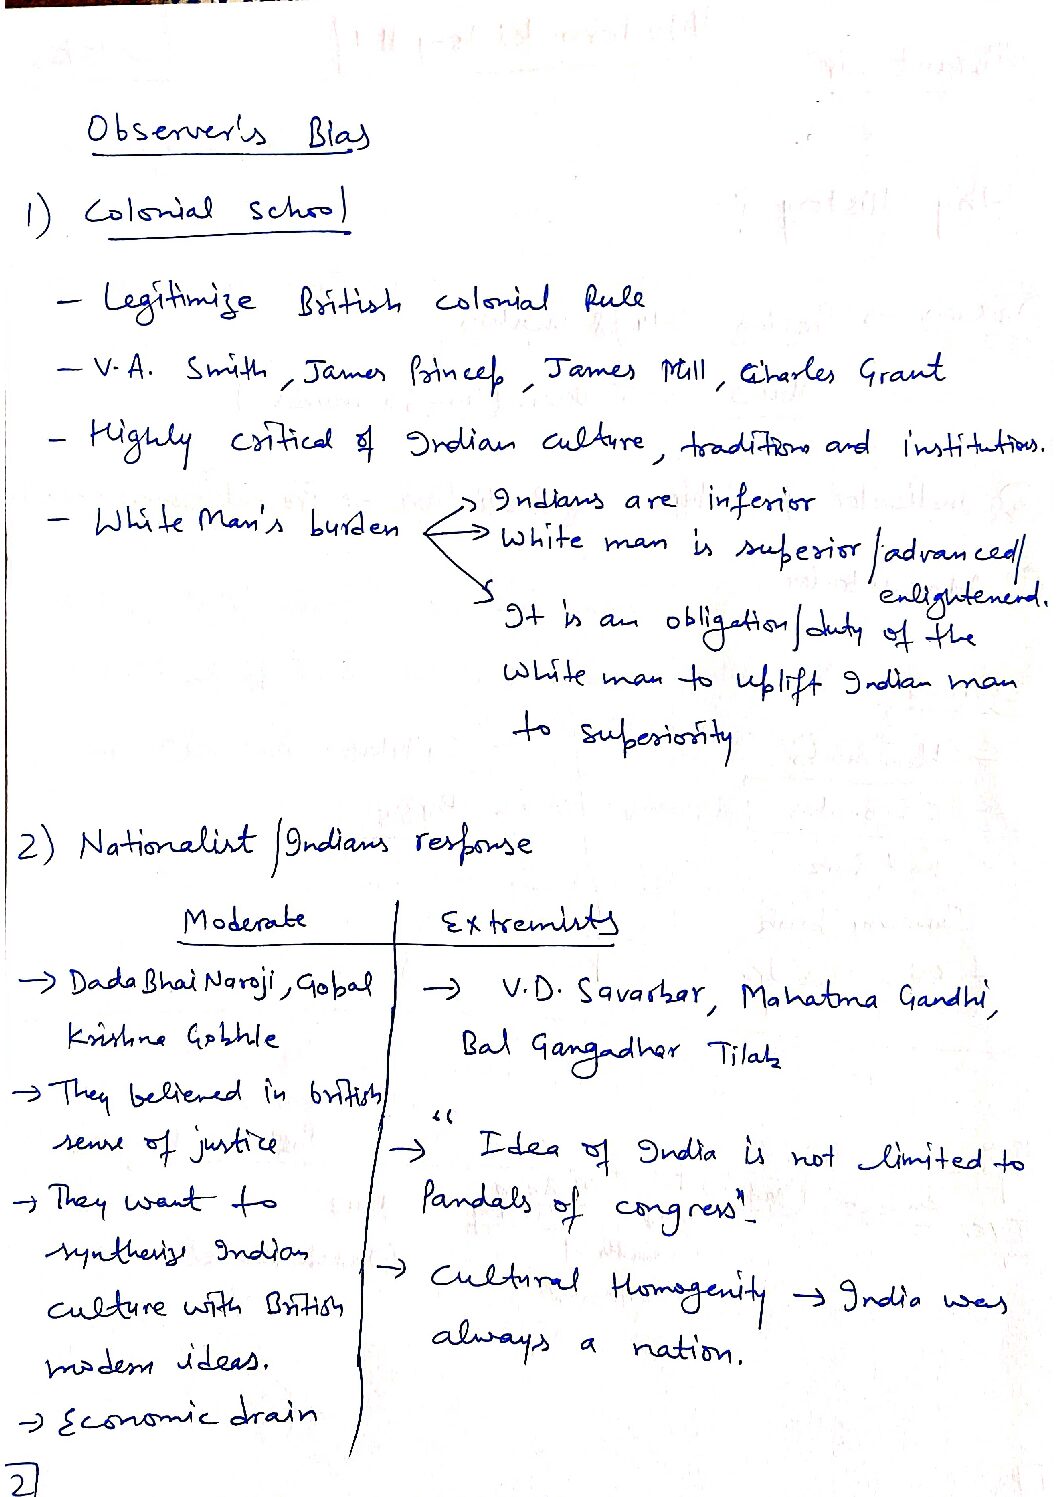 Observer's Bias
1) Colonial School
- Legitimize British colonial Rule
- V.A. Smith, James Princep, James Mill, Charles Grant
- Highly critical of Indian culture, traditions and institutions.
- White Man's burden → Indians are inferior
→ White man is superior/advanced/
enlightenend.
→ It is an obligation/duty of the
White man to uplift Indian man
to superiority
2) Nationalist/Indians response
Moderate
→ DadaBhai Naroji, Gopal
Krishna Gokhle
→ They believed in british
sense of justice
→ They want to
synthesize Indian
culture with British
modern ideas.
→ Economic drain
Extremists
→ V.D. Savarkar, Mahatma Gandhi,
Bal Gangadhar Tilak
→ "Idea of India is not limited to
Pandals of congress"
→ Cultural Homogenity → India was
always a nation.
2